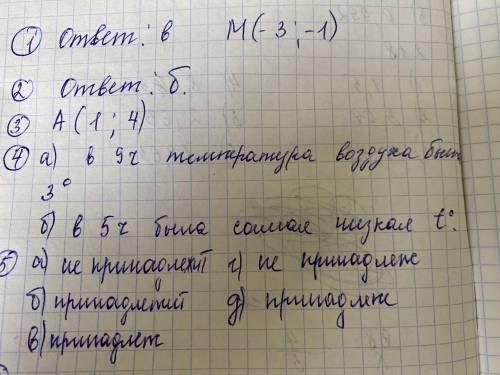 ① Ответ: в М(-3;-1)
② Ответ: б.
③ А(1;4)
④ а) в 9ч температура воздуха был
3°
б) в 5ч была самая низкая t°.
5 а) не принадлежит г) не принадлеж
б) принадлежит д) принадлеж
в) принадлеж